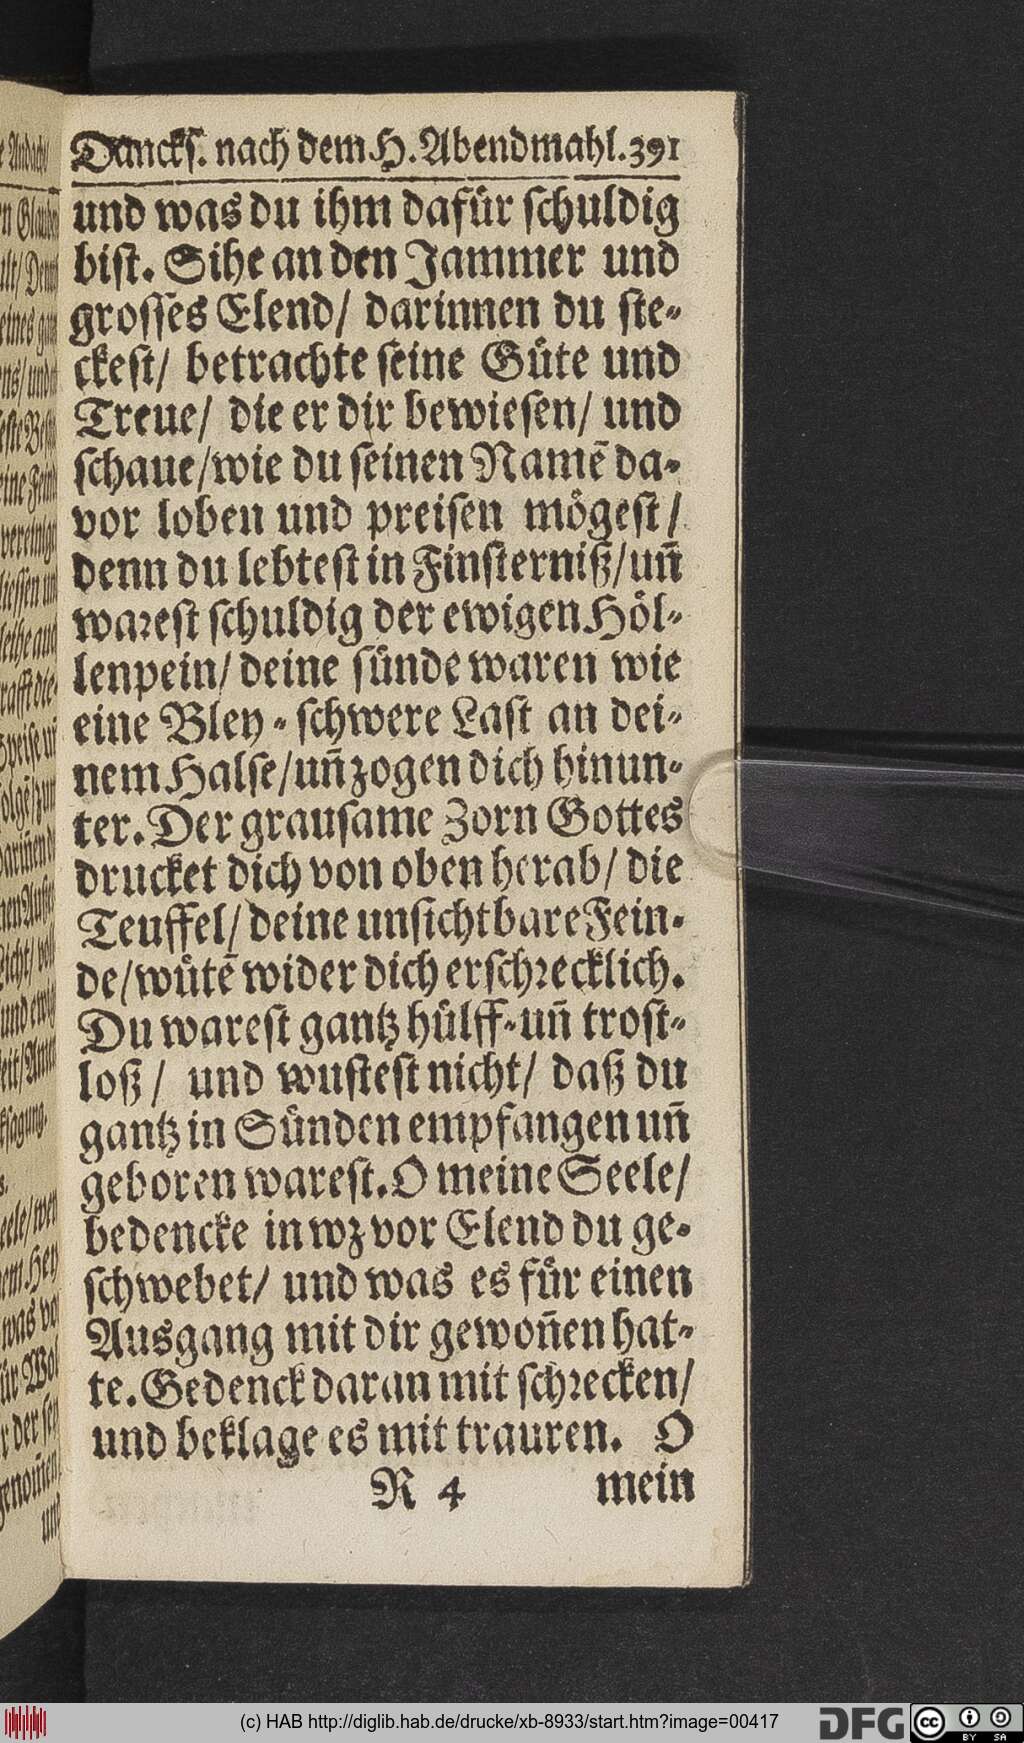 Dancks. nach dem H. Abendmahl. 391
und was du ihm dafür schuldig
bist. Sihe an den Jammer und
grosses Elend/ darinnen du ste-
ckest/ betrachte seine Güte und
Treue/ die er dir bewiesen/ und
schaue/wie du seinen Namẽ da-
vor loben und preisen mögest/
denn du lebtest in Finsterniß/uñ
warest schuldig der ewigen Höl-
lenpein/ deine sünde waren wie
eine Bley-schwere Last an dei-
nem Halse/uñ zogen dich hinun-
ter. Der grausame Zorn Gottes
drucket dich von oben herab/ die
Teuffel/ deine unsichtbare Fein-
de/wütẽ wider dich erschrecklich.
Du warest gantz hülff-uñ trost-
loß/ und wustest nicht/ daß du
gantz in Sünden empfangen uñ
geboren warest. O meine Seele/
bedencke in wz vor Elend du ge-
schwebet/ und was es für einen
Ausgang mit dir gewoñen hat-
te. Gedenck daran mit schrecken/
und beklage es mit trauren. O
R 4 mein
(c) HAB http://diglib.hab.de/drucke/xb-8933/start.htm?image=00417
DFG
cc BY SA